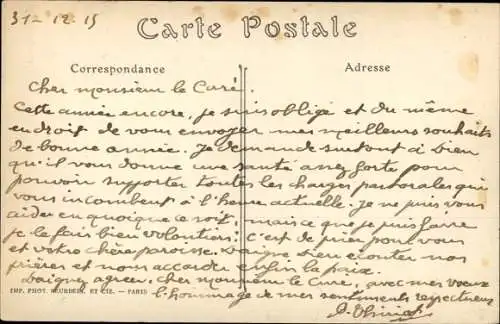 31-12-15
Carte Postale
Correspondance
Adresse
Cher monsieur le Curé.
Cette année encore, je suis obligé et du même
endroit de vous envoyer mes meilleurs souhaits
de bonne année. Je demande surtout à bien
qu'il vous donne une santé assez forte pour
pouvoir supporter toutes les charges pastorales qui
vous incombent à l'heure actuelle. Je ne puis vous
aider en quoique ce soit, mais ce que je puis faire
je le fais bien volontiers: c'est de prier pour vous
et votre chère paroisse. Daigne Dieu écouter nos
prières et nous accorder enfin la paix.
Daignez agréer, cher monsieur le Curé, avec mes voeux
l'hommage de mes sentiments respectueux
IMP. PHOT. ET CIE. — PARIS